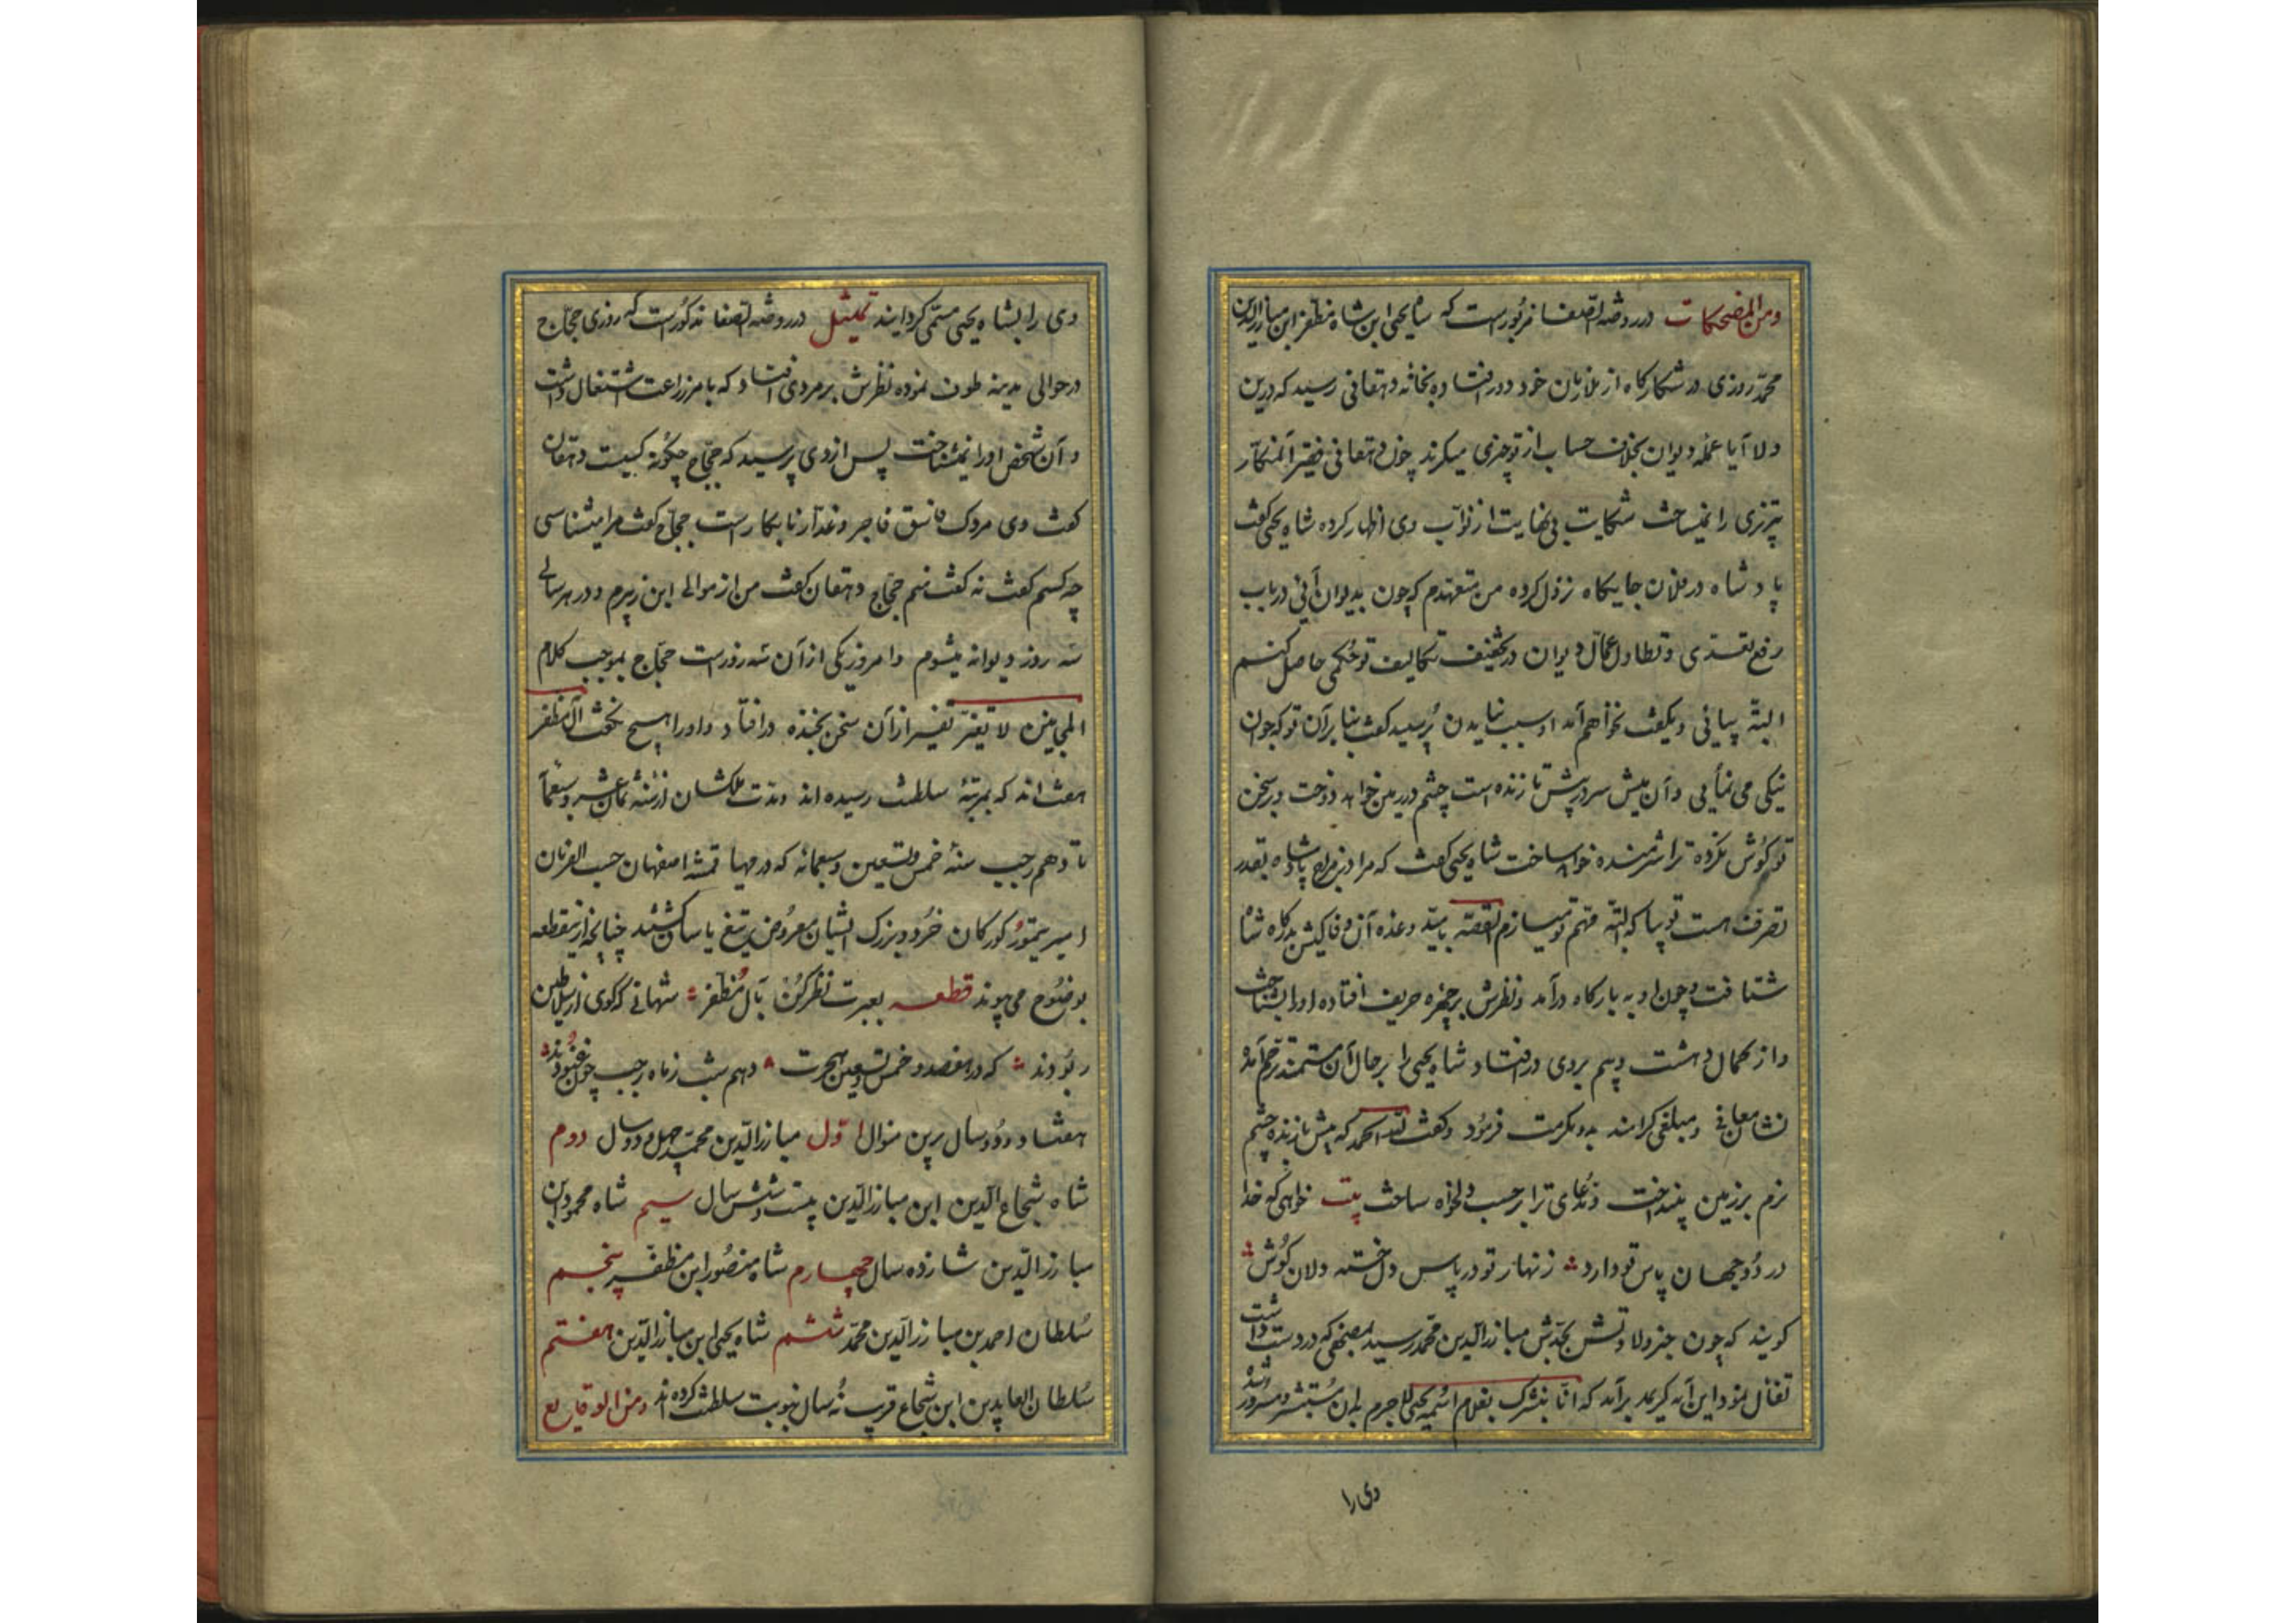 ومن المضحکات در روضه الصفا مزبورست که شاه یحیی ابن شاه مظفر ابن مبارزالدین
محمد روزی در شکارکاه از ملازمان خود دور افتاده بخانه دهقانی رسید که درین
ولا آیا عمله دیوان بخلاف حساب از تو چیزی میکرند چون دهقانی فقیر آنمنکار
تیزی را نمیساخت شکایت بی نهایت از نواب وی اظهار کرده شاه یحیی کفت
پادشاه در فلان جایکاه نزول کرده من متعهدم که چون بدیوان آنی در باب
رفع تعدی و تطاول عمال دیوان در تخفیف تکالیف تو حکمی حاصل کنم
البته بیائی ویکفت نخواهم آمد او سبب نیامدن پرسید کفت بنا بر آن تو که چون
نیکی می نمأیی و آن میش سر در پیش تا زنده است چشم در زمین خواهد دوخت و سخن
تو کوش نکرده ترا شرمنده خواهد ساخت شاه یحیی کفت که مرا در مزاج پادشاه بقدر
تصرف هست تو بیا که البته مهم تو میسازم القصه بامید وعده آن وفا کیش بدرکاه شاه
شتافت و چون او به بارکاه در آمد ونظرش بر چهره حریف افتاده اورا بشناخت
و از کمال دهشت و بیم بردی در افتاد شاه یحیی را بر حال آن مستمند ترحم آمده
نشان معافی و مبلغی کرامند بدو مکرمت فرمود وکفت لله الحمد که میش تا زنده چشم
نرم بر زمین نینداخت و مدعای ترا بر حسب دلخواه ساخت بیت خواهی که خدا
در دو جهان پاس تو دارد زنهار تو در پاس دل خسته دلان کوش
کویند که چون خبر ولادتش بجدش مبارزالدین محمد رسید بمصحفی که در دست داشت
تفأل نمود این آیه کریمه بر آمد که انا نبشرک بغلام اسمه یحیی لاجرم بدان مستبشر و مسرور شده
وی را
وی را بشاه یحیی مسمی کردانیدند تمثیل در روضه الصفا مذکورست که روزی حجاج
در حوالی مدینه طوف نموده نظرش بر مردی افتاد که بامر زراعت اشتغال داشت
و آن شخص اورا نمیشناخت پس از وی پرسید که حجاج چکونه کسیت دهقان
کفت وی مردک فاسق فاجر و غدار نابکارست حجاج کفت مرا میشناسی
چه کسم کفت نه کفت منم حجاج دهقان کفت من از موالی ابن زبیرم و در هر سالی
سه روز دیوانه میشوم و امروز یکی از آن سه روزست حجاج بموجب کلام
المجانین لا تغیر تغیر از آن سخن بخنده در افتاد و اورا هیچ نکفت آل مظفر
هفت اند که بمرتبهٔ سلطنت رسیده اند و مدت ملکشان از سنه ثمان عشر و سبعمائه
تا دهم رجب سنهٔ خمس وتسعین وسبعمائه که در مهیا قمشه اصفهان حسب الفرمان
امیر تیمور کورکان خرد و بزرک ایشان معروض تیغ یاسا کشتند چنانچه از ینقطعه
بوضوح می پیوندد قطعه بعبرت نظر کن بآل مظفر شهانی که کوی از سلاطین
ربودند که در هفصد و خمس وتسعین هجرت دهم شب ز ماه رجب چون غنودند
هفتاد و دو سال برین منوال اول مبارزالدین محمد چهل و دو سال دوم
شاه شجاع الدین ابن مبارزالدین بیست و شش سال سیم شاه محمود بن
مبارزالدین شانزده سال چهارم شاه منصور ابن مظفر پنجم
سلطان احمد بن مبارزالدین محمد ششم شاه یحیی ابن مبارزالدین هفتم
سلطان العابدین ابن شجاع قریب نه سال نوبت سلطنت کرده اند ومن الوقایع